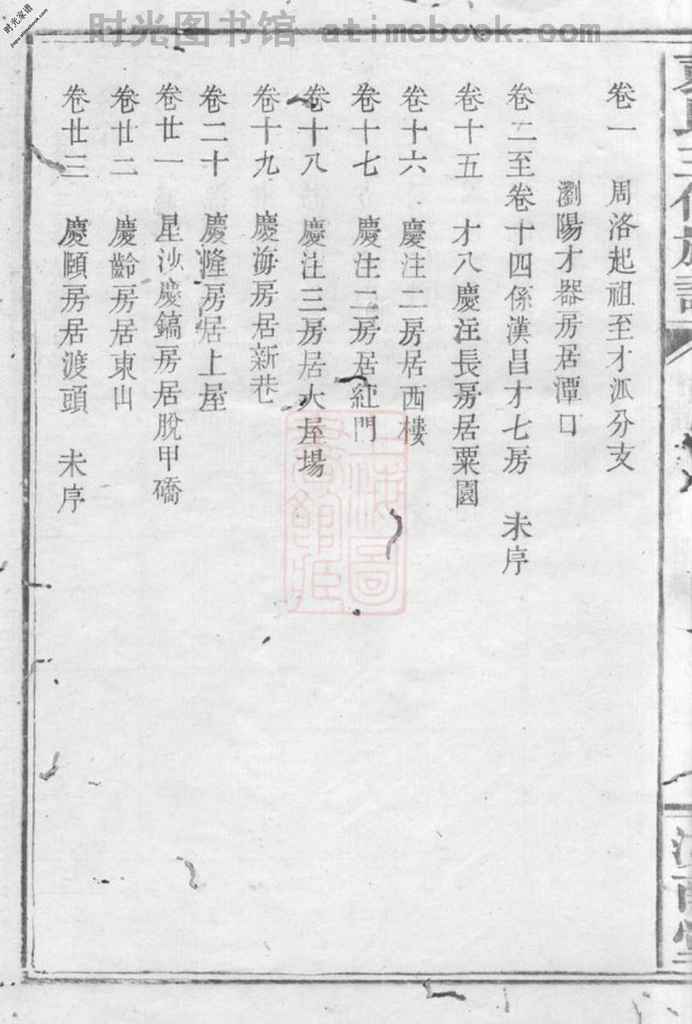 时光图书馆 atimebook.com
时光家谱
卷一 周洛起祖至才派分支
瀏陽才器房居潭口
卷二至卷十四係漢昌才七房 未序
卷十五 才八慶注長房居粟園
卷十六 慶注二房居西樓
卷十七 慶注二房居紅門
卷十八 慶注三房居大屋場
卷十九 慶海房居新巷
卷二十 慶隆房居上屋
卷廿一 星沙慶鎬房居脫甲礄
卷廿二 慶齡房居東山
卷廿三 慶頤房居渡頭 未序